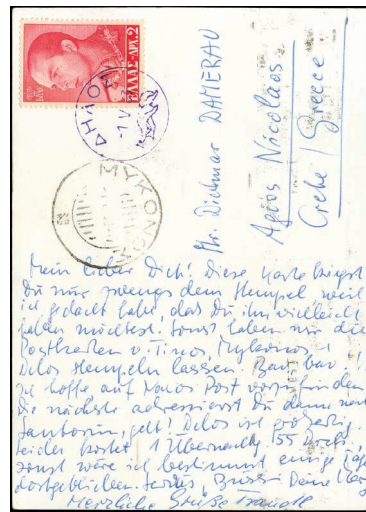 ΕΛΛΑΣ-ΔΡΧ.2
ΔΗΛΟΣ
-1 V
ΜΥΚΟΝΟΣ
Hr. Dietmar DAMERAU
Agios Nicolaos
Crete / Greece
Mein lieber Dich! Diese Karte kriegst
Du nur zwengs dem Stempel weil
ich gedacht habe, daß Du ihn vielleicht
haben möchtest. Sonst haben wir die
Postkarten v. Tinos, Mykonos,
Delos stempeln lassen.
Ich hoffe auf Naxos Post vorzufinden
Die nächste adressierst Du dann nach
Santorin, gelt! Delos ist
leider kostet 1 Übernachtg. 155 Drchm.,
sonst wäre ich bestimmt einige Tage
dortgeblieben. Servus, Bussi Deine
Herzliche Grüße Traudl